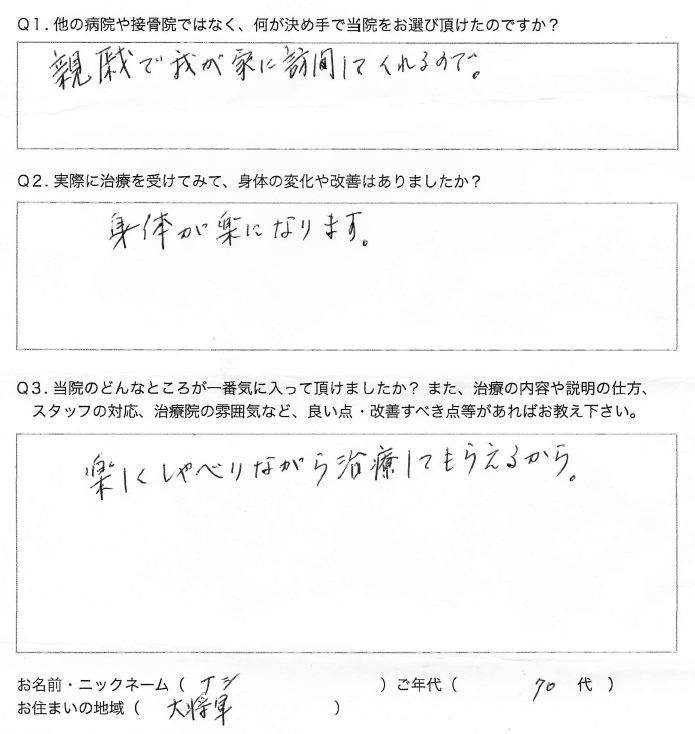 Q1. 他の病院や接骨院ではなく、何が決め手で当院をお選び頂けたのですか？
親戚で我が家に訪問してくれるので。
Q2. 実際に治療を受けてみて、身体の変化や改善はありましたか？
身体が楽になります。
Q3. 当院のどんなところが一番気に入って頂けましたか？ また、治療の内容や説明の仕方、
スタッフの対応、治療院の雰囲気など、良い点・改善すべき点等があればお教え下さい。
楽しくしゃべりながら治療してもらえるから。
お名前・ニックネーム（ ）ご年代（ 70 代 ）
お住まいの地域（ 大将軍 ）